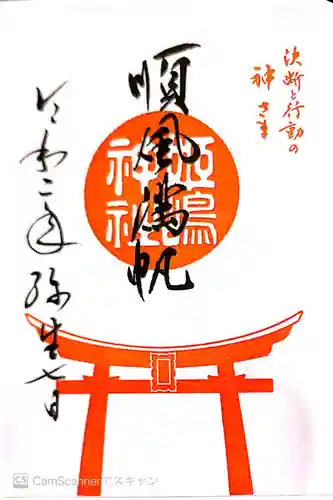 決断と行動の
神さま
順風満帆
亜鳴
神社
令和二年 弥生七日
CS CamScannerでスキャン